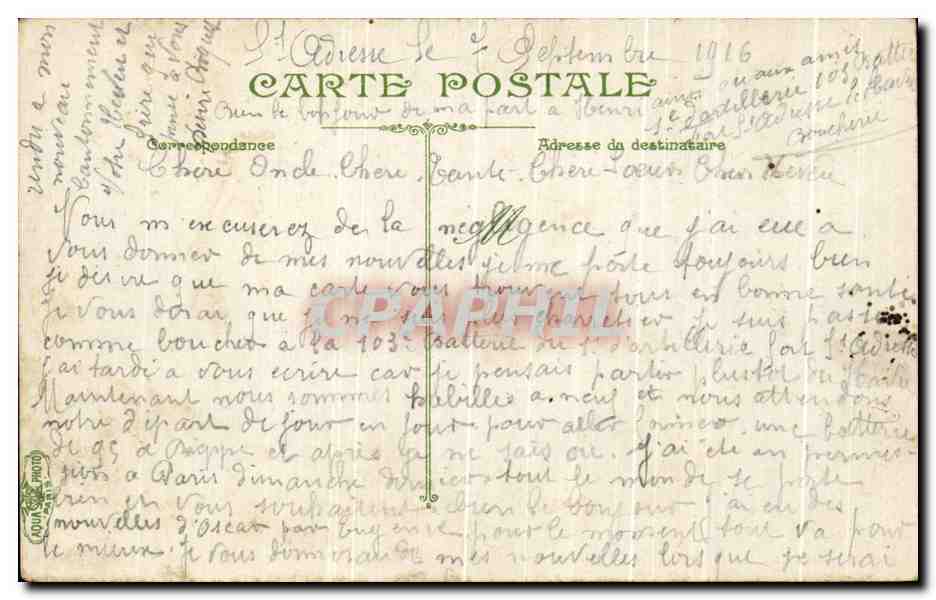 St Adresse le 7 Septembre 1916
CARTE POSTALE
Bien le bonjour de ma part a Henri ainsi qu'aux amis
1e d'artillerie 103e Batterie
fort St Adresse le Havre
Boucherie
Correspondance
Adresse du destinataire
Chère Oncle Chere Tante Chere Soeurs Chers Neveu
Vous m'excuserez de la négligence que j'ai eue a
vous donner de mes nouvelles je me porte toujours bien
je désire que ma carte vous trouvera tous en bonne santé
je vous dérai que je ne suis plus charretier je suis passé
comme boucher a la 103e Batterie du 1e d'artillerie fort St Adresse
j'ai tardé a vous ecrire car je pensais partir plustot du Havre
Maintenant nous sommes habillés a neuf et nous attendons
notre départ de jour en jour pour aller former une batterie
de 95 a Dieppe et après ça ne sais ou. j'ai été en permis-
sion a Paris dimanche dernier tout le monde se porte
bien et vous souhaitent bien le bonjour j'ai eu des
nouvelles d'Oscar par Eugenie pour le moment tout va pour
le mieux. je vous donnerai de mes nouvelles lorsque je serai
rendu a mon
nouveau
Cantonnement
Votre Neveu et
Frère qui
pense à vous
Henri
AQUA PHOTO
PARIS
CPAPHIL